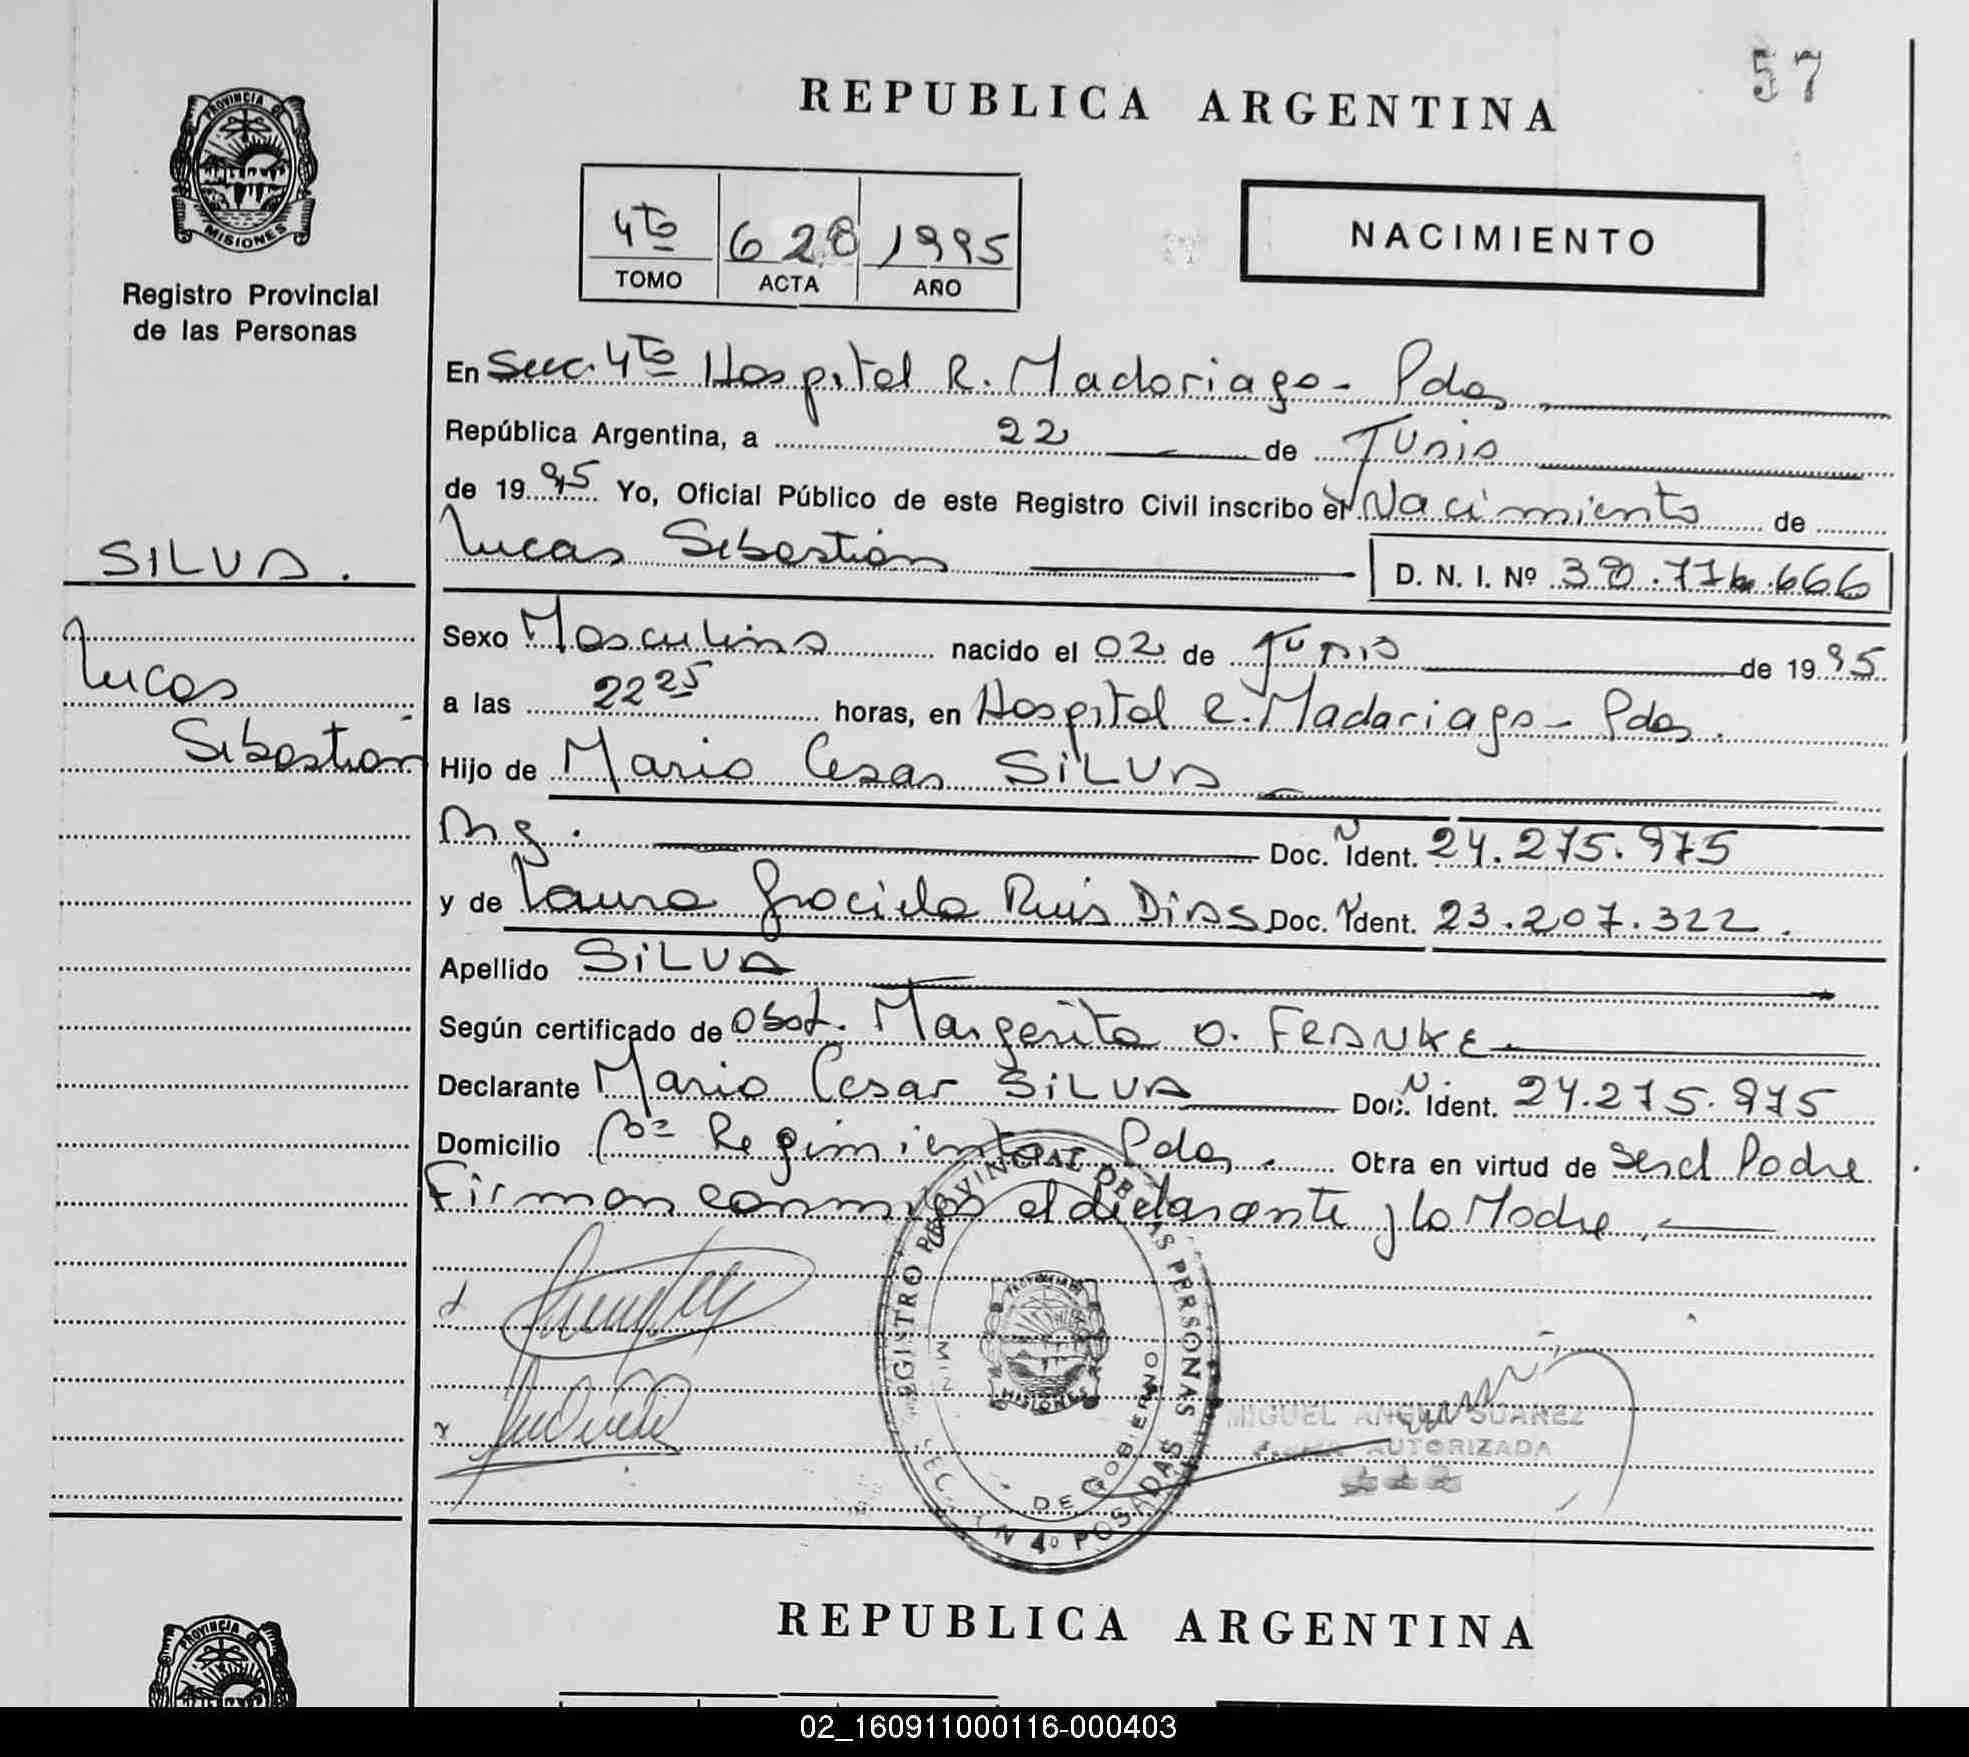 57
REPUBLICA ARGENTINA
PROVINCIA DE
MISIONES
Registro Provincial
de las Personas
4to 628 1995
TOMO ACTA AÑO
NACIMIENTO
En Secc. 4to Hospital R. Madariaga - Pdas
República Argentina, a 22 de Junio
de 1995 Yo, Oficial Público de este Registro Civil inscribo el Nacimiento de
SILVA.
Lucas Sebastián D. N. I. Nº .666
Lucas
Sebastián
Sexo Masculino nacido el 02 de Junio de 1995
a las 22 25 horas, en Hospital R. Madariaga - Pdas.
Hijo de Mario Cesar SILVA
Arg. Doc. Ident. 24.275.975
y de Laura Graciela Ruis Dias Doc. Ident. 23.207.322.
Apellido SILVA
Según certificado de Obst. Margarita O. FRANKE
Declarante Mario Cesar SILVA Doc. Ident. 24.275.975
Domicilio Bº Regimiento Pdas. Obra en virtud de ser el Padre.
Firman conmigo el declarante y la Madre,
REGISTRO PROVINCIAL DE LAS PERSONAS
DE GOBIERNO
4º POSADAS
PROVINCIA DE
MISIONES
MIGUEL ANGEL SUAREZ
AUTORIZADA
REPUBLICA ARGENTINA
PROVINCIA DE
02_160911000116-000403